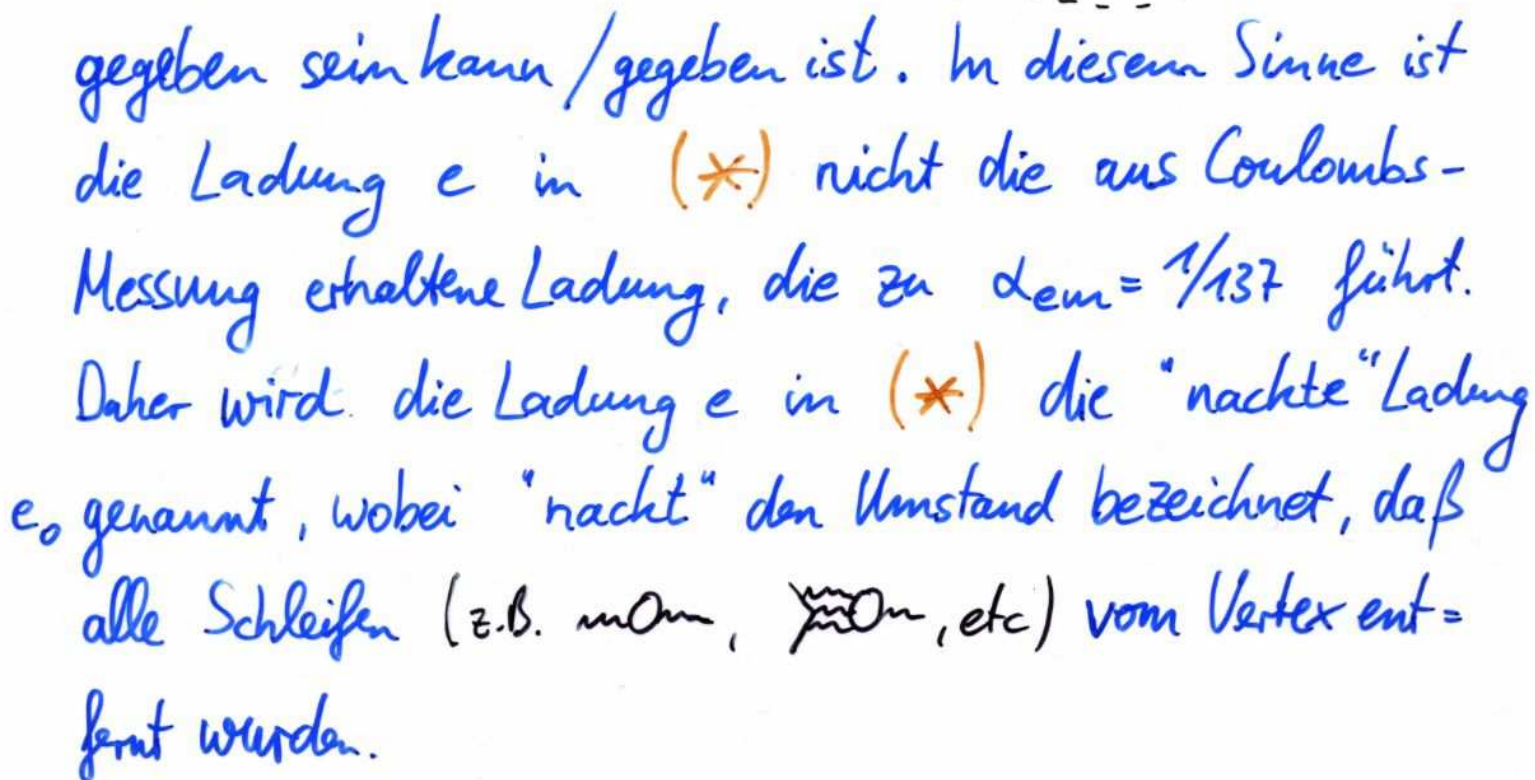 gegeben sein kann / gegeben ist. In diesem Sinne ist
die Ladung e in (*) nicht die aus Coulombs-
Messung erhaltene Ladung, die zu α_em = 1/137 führt.
Daher wird die Ladung e in (*) die "nachte" Ladung
e₀ genannt, wobei "nacht" den Umstand bezeichnet, daß
alle Schleifen (z.B. , , etc) vom Vertex ent=
fernt wurden.